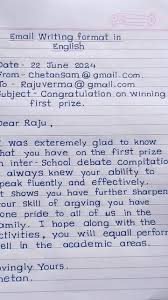 Email Writing format in
English
Date - 22 June 2024
From - Chetansam@gmail.com
To - Rajuverma@gmail.com
Subject - Congratulation on winning
first prize.
Dear Raju,
I was extremely glad to know
that you have on the first prize
in inter-School debate compitation
always knew your ability to
speak fluently and effectively.
It shows you have further sharpen
your skill of argving you have
one pride to all of us in the
family. I hope along with the
ctivities, you will equall perform
ell in the academic areas.
ovingly Yours.
hetan.